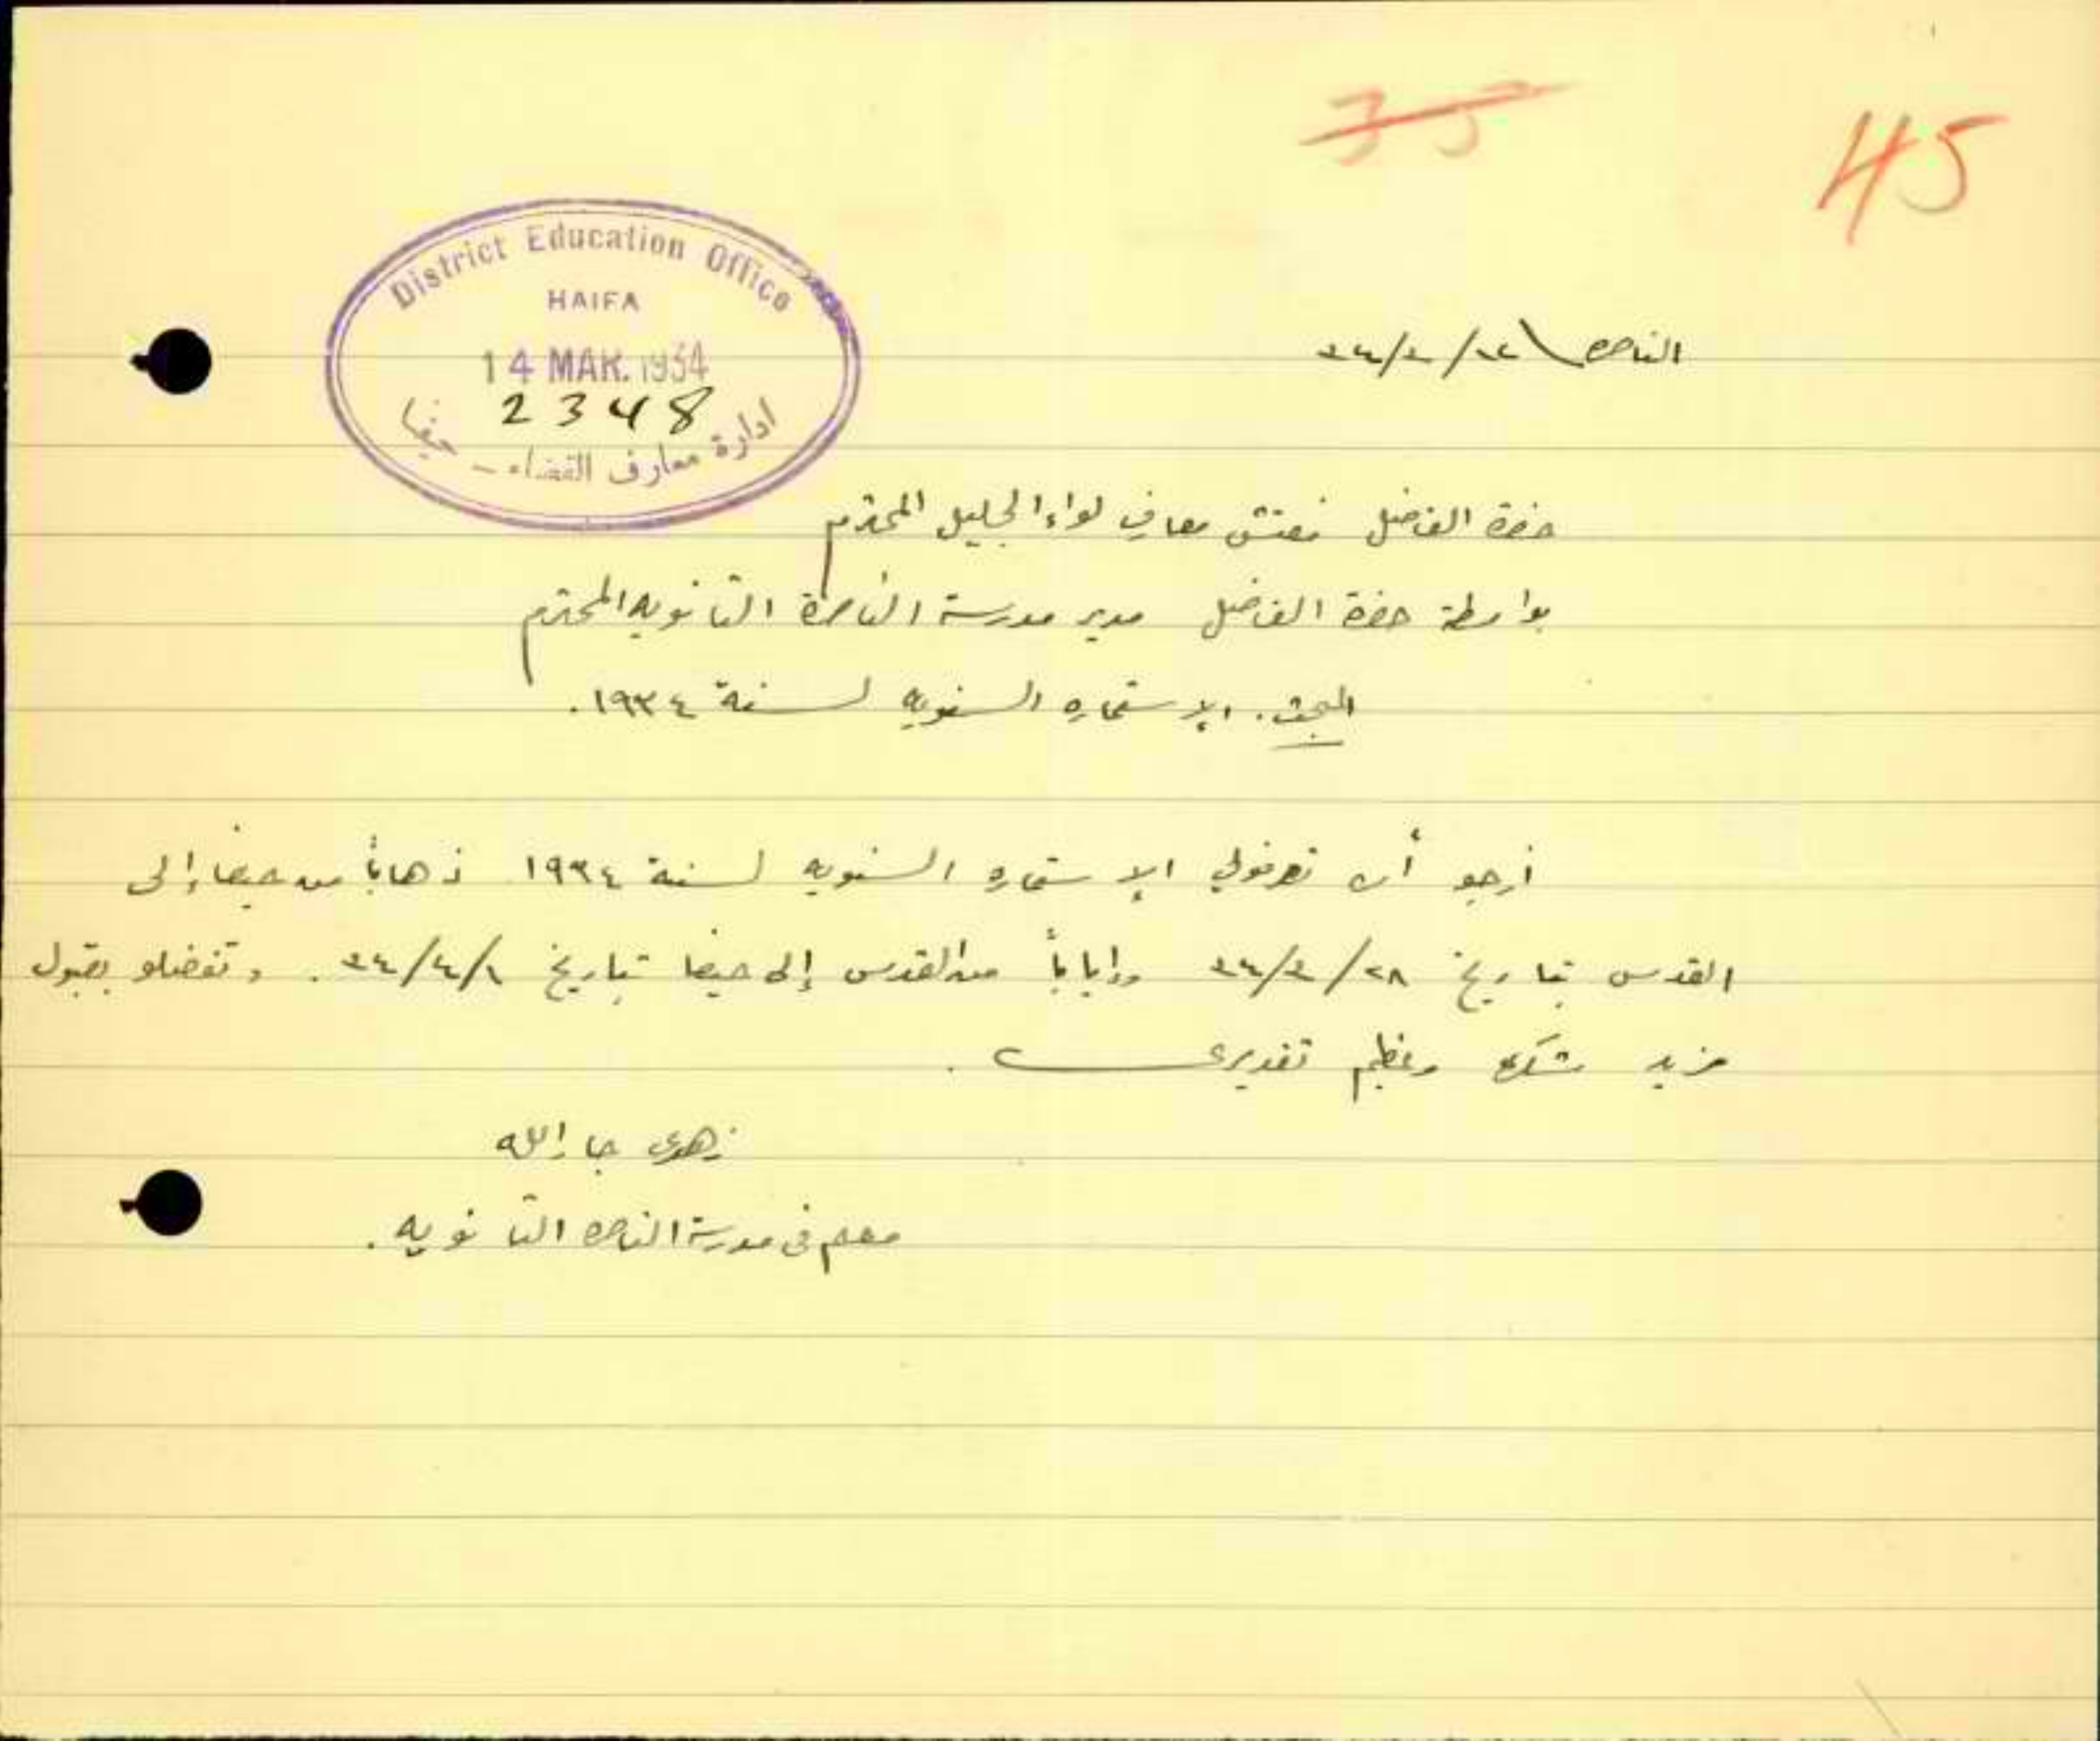 35
45
District Education Office
HAIFA
14 MAR. 1934
2348
ادارة معارف القضاء - حيفا
الناصره ١٢/٣/٣٤
حضرة الفاضل مفتش معارف لواء الجليل المحترم
بواسطة حضرة الفاضل مدير مدرسة الناصرة الثانويه المحترم
المبحث. الإستماره السنويه لسنة ١٩٣٤.
أرجو أن تصرفولي الإستماره السنويه لسنة ١٩٣٤ ذهاباً من حيفا إلى
القدس بتاريخ ٢٨/٣/٣٤ وإياباً من القدس إلى حيفا بتاريخ ٨/٤/٣٤. وتفضلو بقبول
مزيد شكري وعظيم تقديري.
زهدي جارالله
معلم في مدرسة الناصره الثانويه.